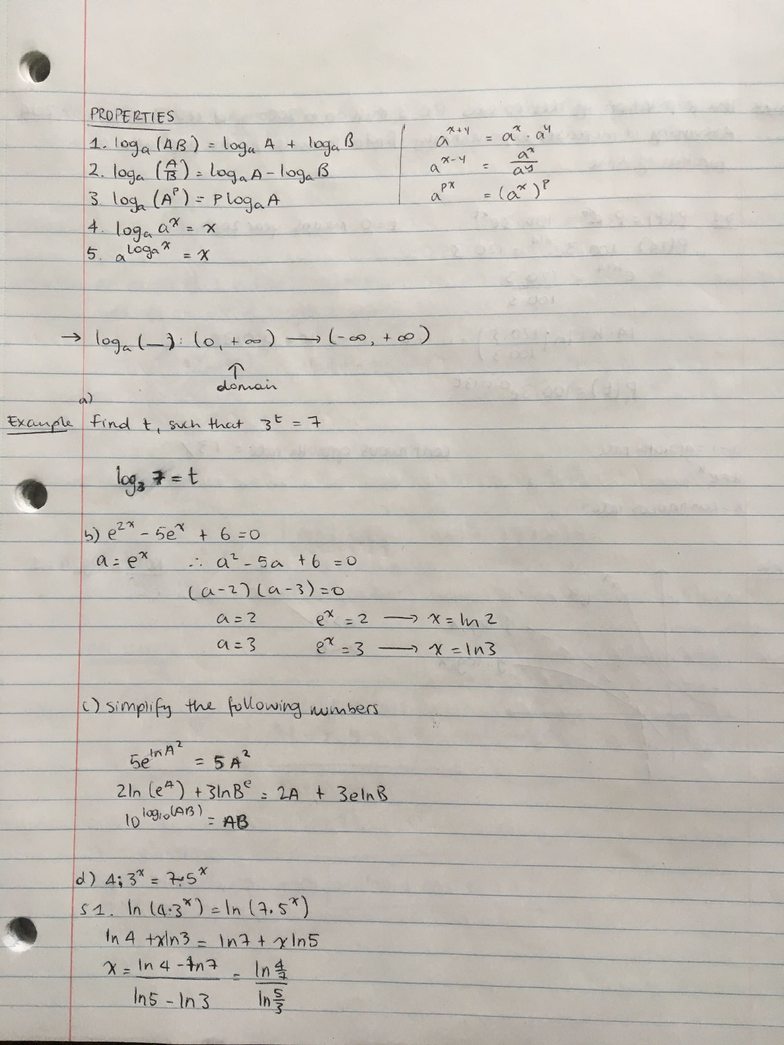 PROPERTIES
1. logₐ(AB) = logₐ A + logₐ B | aˣ⁺ʸ = aˣ · aʸ
2. logₐ(A/B) = logₐ A − logₐ B | aˣ⁻ʸ = aˣ/aʸ
3. logₐ(Aᵖ) = p logₐ A | aᵖˣ = (aˣ)ᵖ
4. logₐ aˣ = x
5. a^(logₐ x) = x
→ logₐ(—): (0, +∞) → (−∞, +∞)
↑
domain
a)
Example find t, such that 3ᵗ = 7
log₃ 7 = t
b) e²ˣ − 5eˣ + 6 = 0
a = eˣ ∴ a² − 5a + 6 = 0
(a−2)(a−3) = 0
a = 2 eˣ = 2 → x = ln 2
a = 3 eˣ = 3 → x = ln3
c) simplify the following numbers
5e^(lnA²) = 5A²
2ln(eᴬ) + 3lnBᵉ = 2A + 3elnB
10^(log₁₀(AB)) = AB
d) 4·3ˣ = 7·5ˣ
S1. ln(4·3ˣ) = ln(7·5ˣ)
ln4 + xln3 = ln7 + xln5
x = (ln4 − ln7)/(ln5 − ln3) = (ln 4/7)/(ln 5/3)